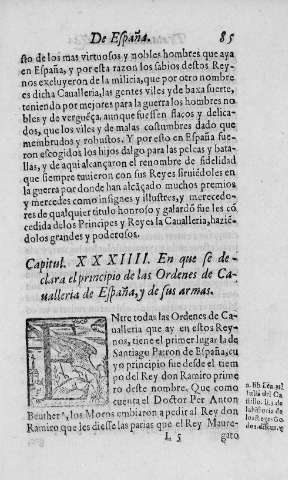 De España. 85
sto de los mas virtuosos y nobles hombres que aya
en España, y por esta razon los sabios destos Rey-
nos excluyeron de la milicia, que por otro nombre
es dicha Caualleria, las gentes viles y de baxa suerte,
teniendo por mejores para la guerra los hombres no
bles y de verguẽça, aunque fuessen flacos y delica-
dos, que los viles y de malas costumbres dado que
membrudos y robustos. Y por esto en España fue-
ron escogidos los hijos dalgo para las peleas y bata-
llas, y de aqui alcançaron el renombre de fidelidad
que siempre tuuieron con sus Reyes siruiẽdoles en
la guerra por donde han alcãçado muchos premios
y mercedes como insignes y illustres, y merecedo-
res de qualquier titulo honroso y galardõ fue les cõ
cedida de los Principes y Reyes la Caualleria, haziẽ
dolos grandes y poderosos.
Capitul. XXXIIII. En que se de-
clara el principio de las Ordenes de Ca-
ualleria de España, y de sus armas.
ENtre todas las Ordenes de Ca-
ualleria que ay en estos Rey-
nos, tiene el primer lugar la de
Santiago Patron de España, cu
yo principio fue desde el tiem
po del Rey don Ramiro prime
ro deste nombre. Que como
cuenta el Doctor Per Anton
Beuther, los Moros embiaron a pedir al Rey don
Ramiro que les diesse las parias que el Rey Maure-
L 5 gato